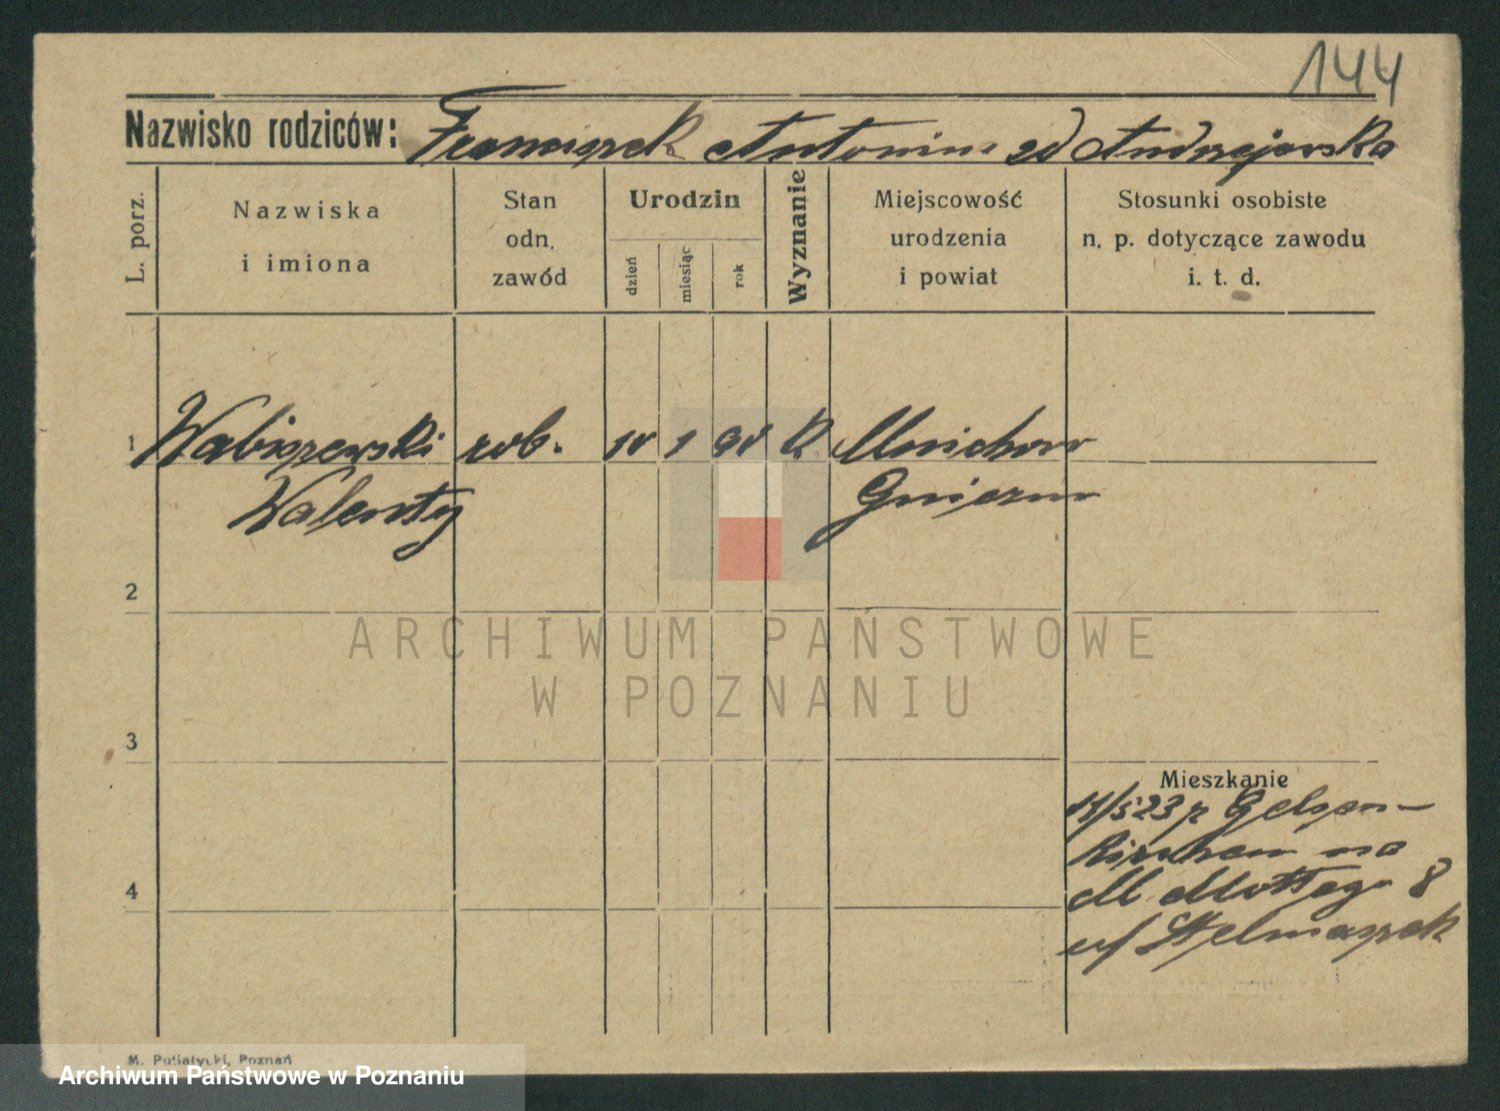 144
Nazwisko rodziców: Franciszek Antonina zd Andrzejewska
L. porz.
Nazwiska
i imiona
Stan
odn.
zawód
Urodzin
dzień
miesiąc
rok
Wyznanie
Miejscowość
urodzenia
i powiat
Stosunki osobiste
n. p. dotyczące zawodu
i. t. d.
1 Wabiszewski rob. 1 k. Mnichowo
Walenty Gniezno
2
3
4
ARCHIWUM PAŃSTWOWE
W POZNANIU
Mieszkanie
14/5 23 z Gelsen-
kirchen na
M Mottego 8
u/ Stelmaszek
M. Putiatycki, Poznań
Archiwum Państwowe w Poznaniu